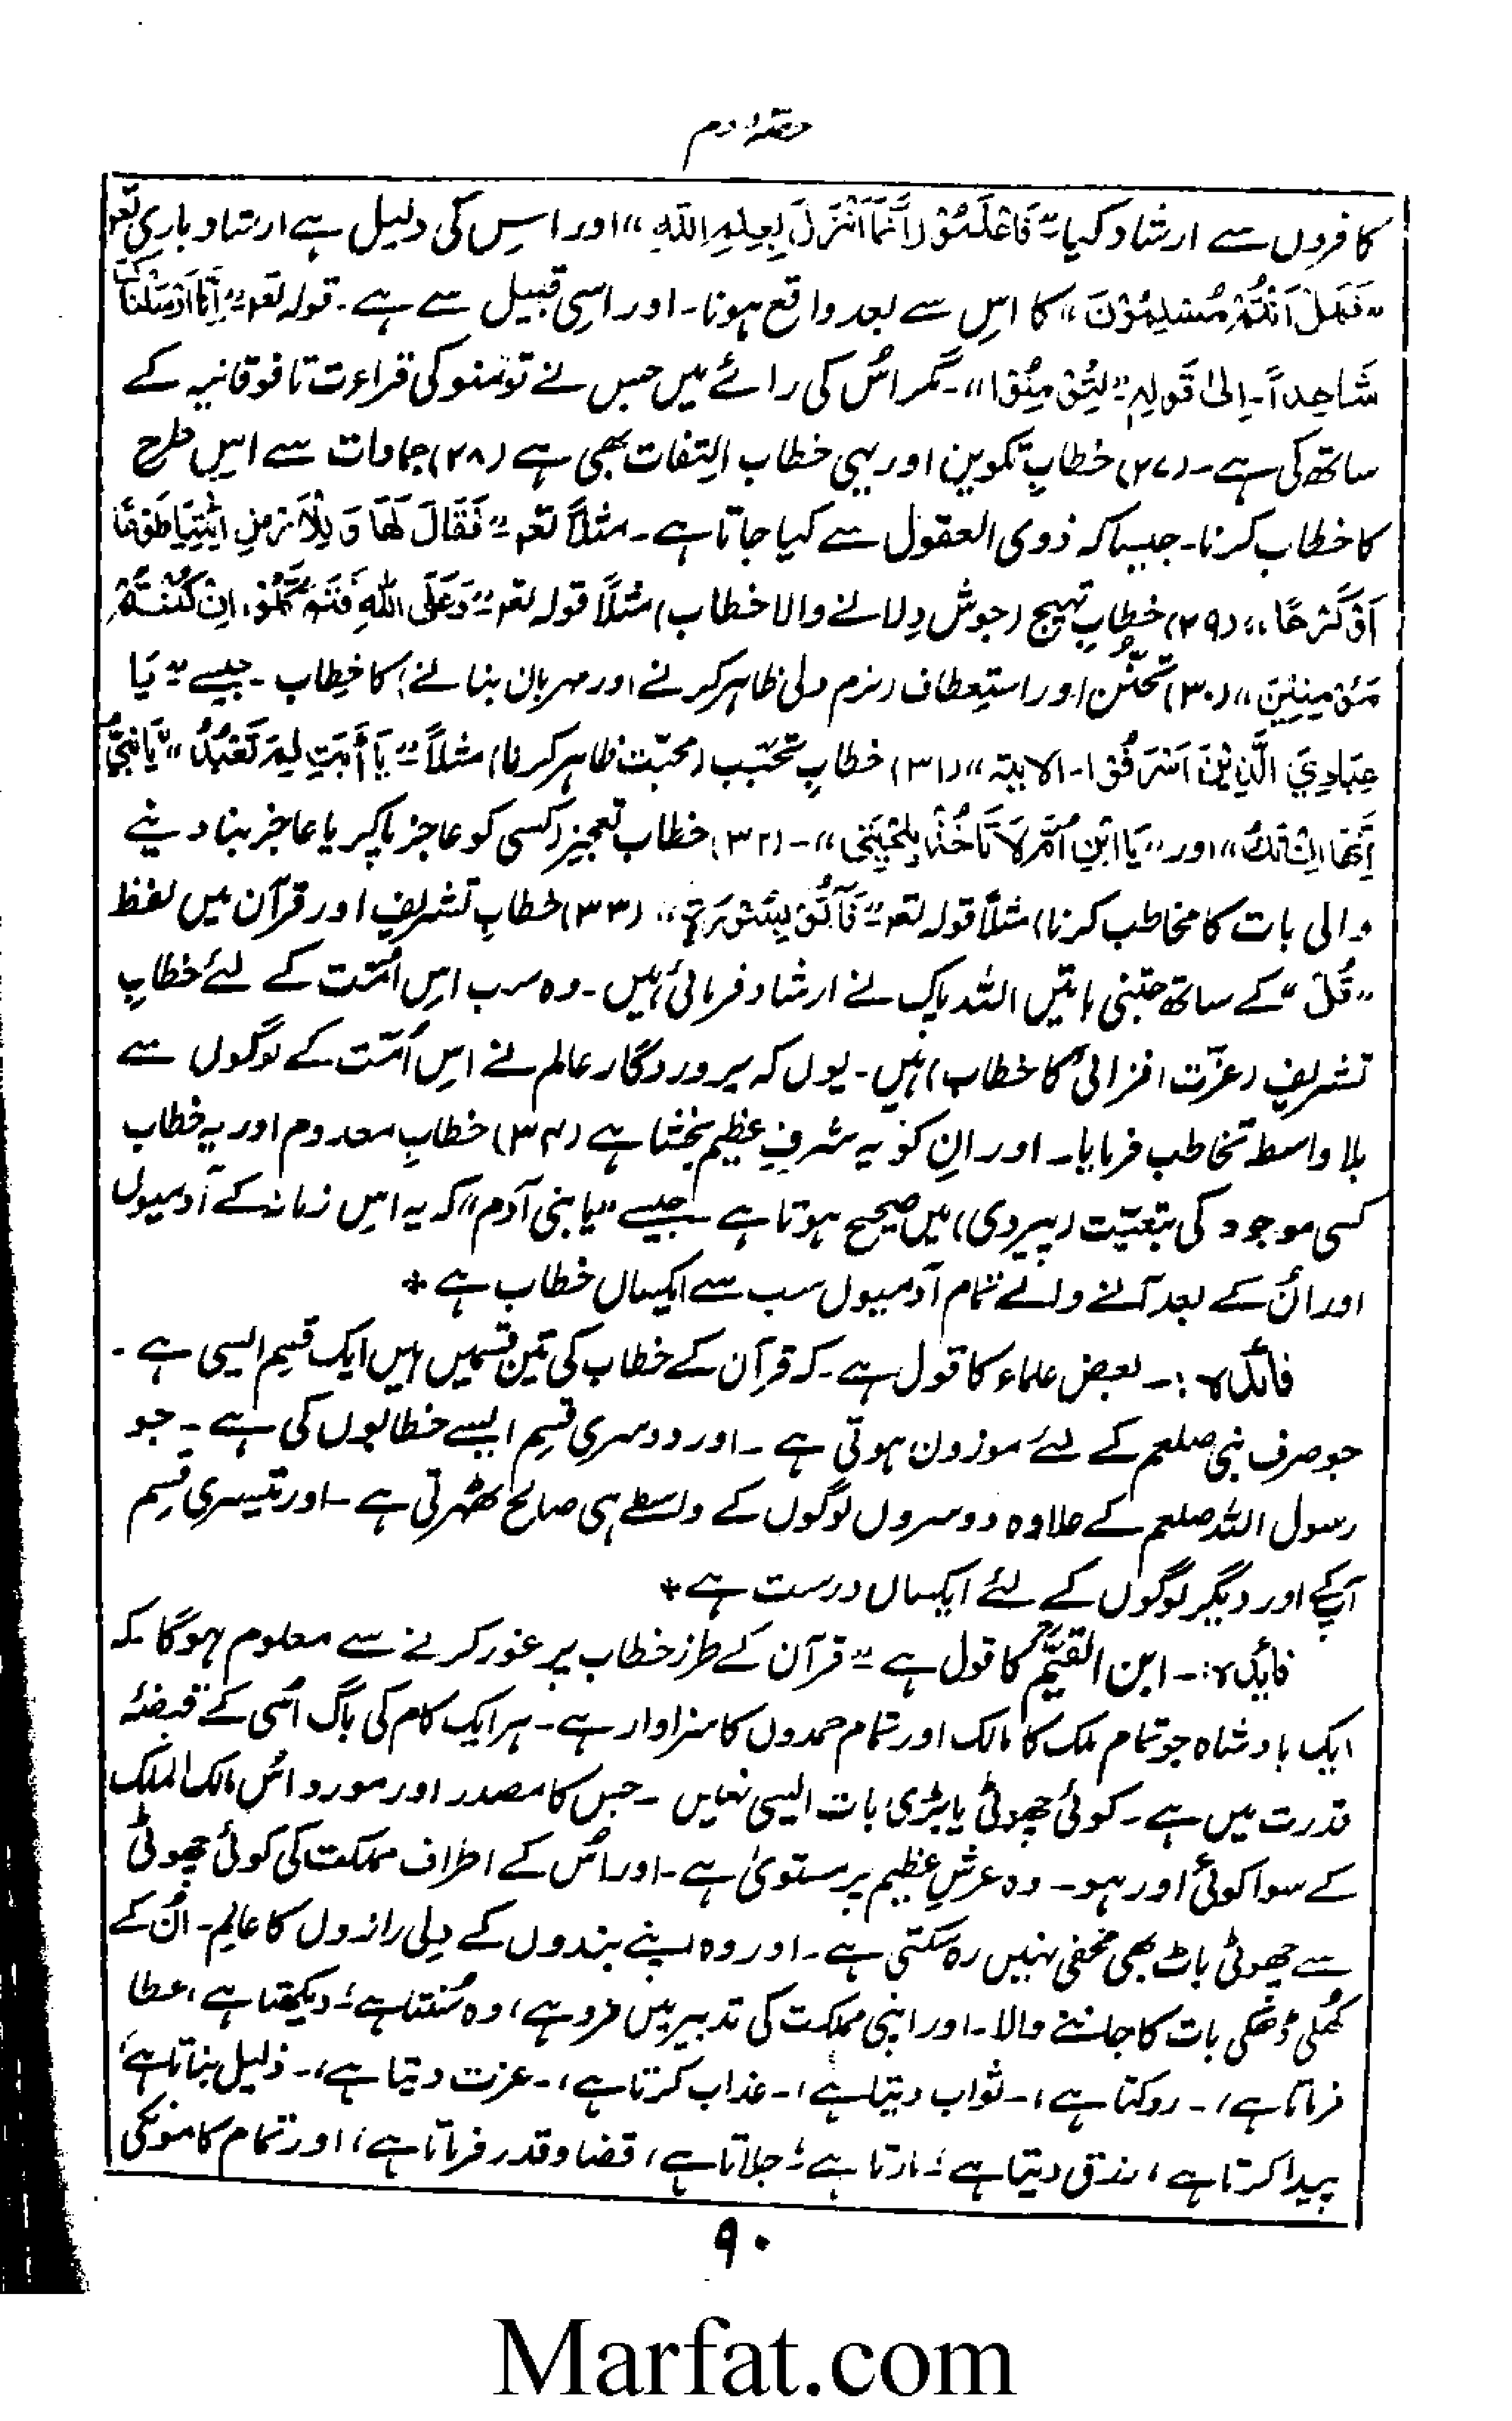 حصۂ دوم
کافروں سے ارشاد کیا "فَاعْلَمُوْا اَنَّمَا اُنْزِلَ بِعِلْمِ اللّٰہِ" اور اس کی دلیل ہے ارشاد باری تعہ
"فَهَلْ اَنْتُمْ مُسْلِمُوْنَ" کا اس سے بعد واقع ہونا۔ اور اسی قبیل سے ہے۔ قولہ تعہ "اِنَّا اَرْسَلْنٰکَ
شَاهِداً۔ اِلیٰ قَولِہٖ "لِتُؤْمِنُوْا"۔ مگر اُس کی رائے میں جس نے تومنو کی قراءت تا فوقانیہ کے
ساتھ کی ہے۔ (۲۷) خطابِ تکوین اور یہی خطاب التفات بھی ہے (۲۸) جمادات سے اِس طرح
کا خطاب کرنا۔ جیسا کہ ذوی العقول سے کیا جاتا ہے۔ مثلاً تعہ "فَقَالَ لَهَا وَ لِلْاَرْضِ ائْتِیَا طَوْعًا
اَوْ کَرْهًا" (۲۹) خطابِ تہیج (جوش دِلانے والا خطاب) مثلاً قولہ تعہ "وَعَلَی اللّٰہِ فَتَوَکَّلُوْا اِنْ کُنْتُمْ
مُؤْمِنِیْنَ" (۳۰) تحنُّن اور استعطاف (نرم دلی ظاہر کرنے اور مہربان بنانے) کا خطاب۔ جیسے "یَا
عِبَادِیَ الَّذِیْنَ اَسْرَفُوْا۔ الایتہ" (۳۱) خطابِ تحبّب (محبّت ظاہر کرنا) مثلاً "یَا أَبَتِ لِمَ تَعْبُدُ" "یَا بُنَیَّ
اِنَّهَا اِنْ تَكُ" اور "یَا ابْنَ اُمَّ لَا تَأخُذْ بِلِحْیَتِیْ"۔ (۳۲) خطاب تعجیز (کسی کو عاجز پا کر یا عاجز بنا دینے
والی بات کا مخاطب کرنا) مثلاً قولہ تعہ "فَأْتُوْ بِسُوْرَۃٍ" (۳۳) خطابِ تشریف اور قرآن میں لفظ
"قُلْ" کے ساتھ جتنی باتیں اللہ پاک نے ارشاد فرمائی ہیں۔ وہ سب اس اُمّت کے لئے خطابِ
تشریف (عزّت افزائی کا خطاب) ہیں۔ یوں کہ پروردگار عالم نے اِس اُمّت کے لوگوں سے
بلا واسطہ تخاطب فرمایا۔ اور اِن کو یہ شرفِ عظیم بخشا ہے (۳۴) خطابِ معدوم اور یہ خطاب
کسی موجود کی بتعیّت (پیروی) میں صحیح ہوتا ہے۔ جیسے "یا بنی آدم" کہ یہ اس زمانہ کے آدمیوں
اور اُن کے بعد آنے والے تمام آدمیوں سب سے ایکساں خطاب ہے *
فائدہ :۔ بعض علماء کا قول ہے۔ کہ قرآن کے خطاب کی تین قسمیں ہیں ایک قسم ایسی ہے۔
جو صرف نبی صلعم کے لئے موزون ہوتی ہے۔ اور دوسری قسم ایسے خطابوں کی ہے۔ جو
رسول اللہ صلعم کے علاوہ دوسروں لوگوں کے واسطے ہی صالح ٹھہرتی ہے۔ اور تیسری قسم
آپ کے اور دیگر لوگوں کے لئے ایکساں درست ہے *
فائدہ :۔ ابن القیمؒ کا قول ہے "قرآن کے طرزِ خطاب پر غور کرنے سے معلوم ہو گا کہ
ایک بادشاہ جو تمام ملک کا مالک اور تمام حمدوں کا سزاوار ہے۔ ہر ایک کام کی باگ اُسی کے قبضۂ
قدرت میں ہے۔ کوئی چھوٹی یا بڑی بات ایسی نہیں۔ جس کا مصدر اور مورد اُس مالک الملک
کے سوا کوئی اور ہو۔ وہ عرشِ عظیم پر مستویٰ ہے۔ اور اُس کے اطراف مملکت کی کوئی چھوٹی
سے چھوٹی بات بھی مخفی نہیں رہ سکتی ہے۔ اور وہ اپنے بندوں کے دِلی رازوں کا عالم۔ اُن کے
کُھلی ڈھکی بات کا جاننے والا۔ اور اپنی مملکت کی تدبیر میں فرد ہے، وہ سُنتا ہے، دیکھتا ہے، عطا
فرماتا ہے،۔ روکتا ہے،۔ ثواب دیتا ہے،۔ عذاب کرتا ہے،۔ عزت دیتا ہے،۔ ذلیل بناتا ہے،
پیدا کرتا ہے، رزق دیتا ہے، مارتا ہے، جلاتا ہے، قضا و قدر فرماتا ہے، اور تمام کامونکی
۹۰
Marfat.com